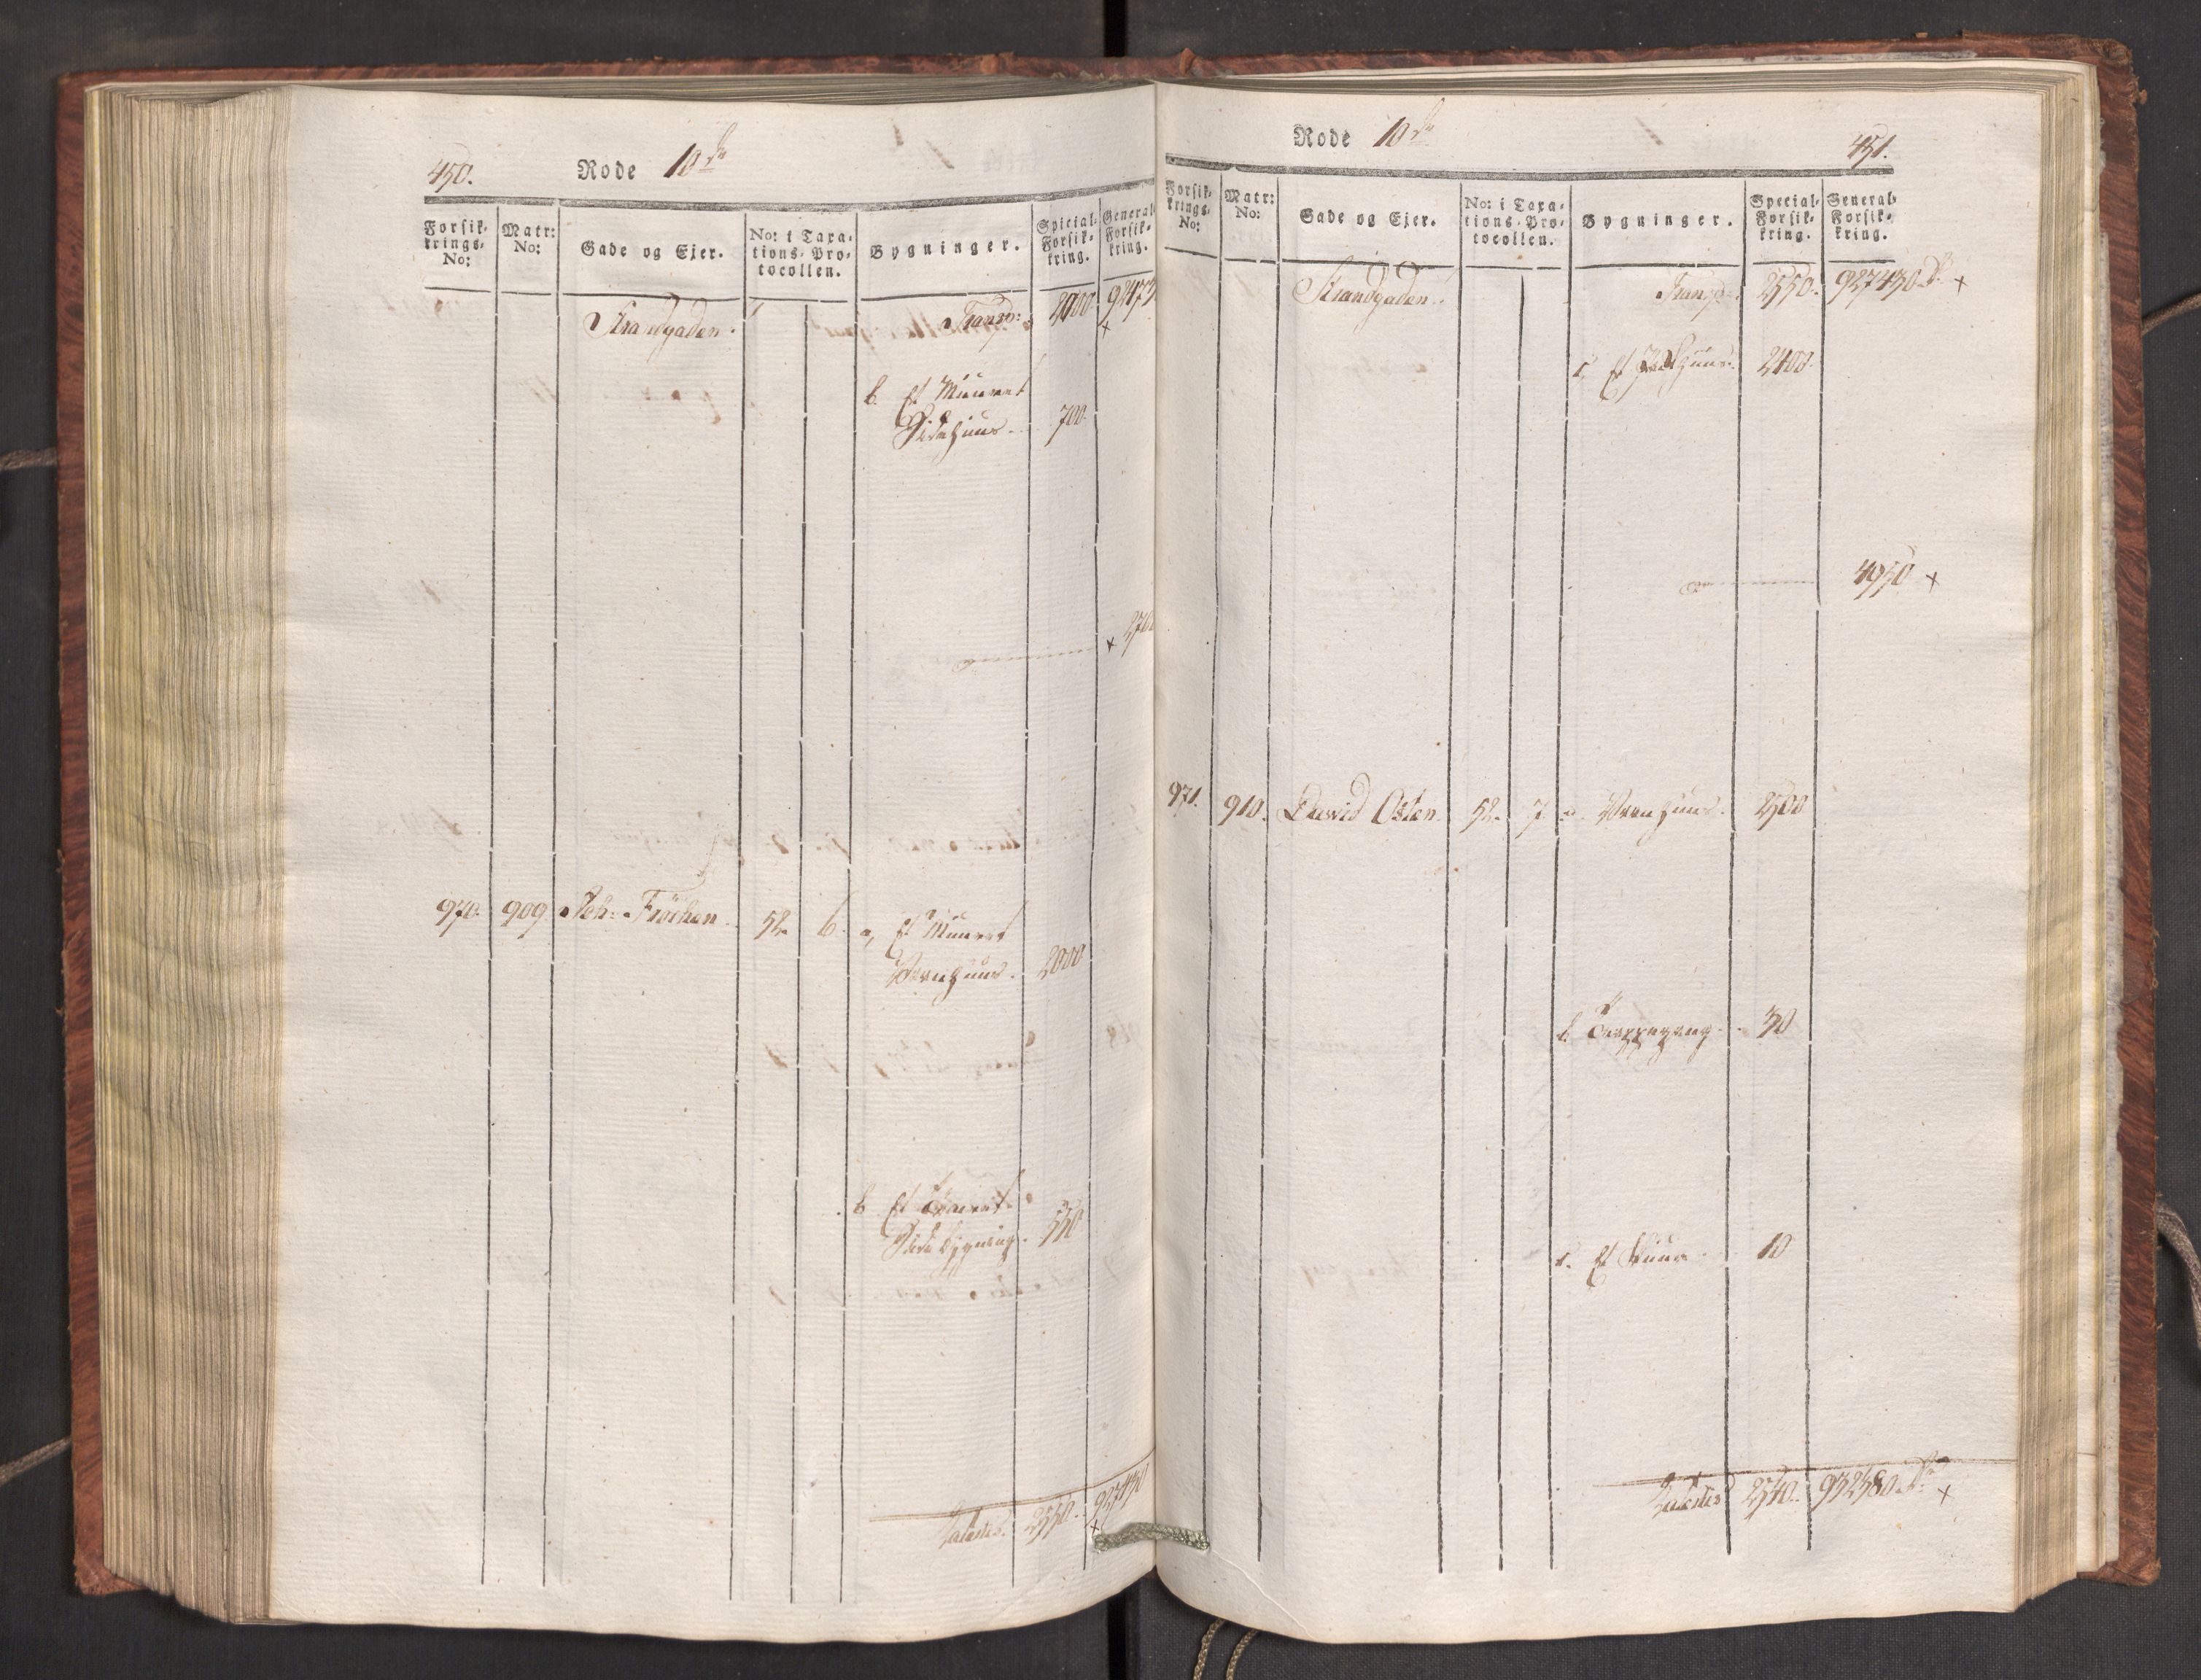 450.
Rode 10de
Forsik-
krings-
No:
Matr:
No:
Gade og Ejer.
No: i Taxa-
tions-Pro-
tocollen.
Bygninger.
Special-
Forsik-
kring.
General-
Forsik-
kring.
Strandgaden. Transp: 2000.
b. Et Muuret
Sidehuus. 700.
270
970. 909 Joh: Fröchen 52. 6. a, Et Muuret
Vaanhuus. 2000
b Et
Sidebygning. 550
Lateris. 2550. 927430
Rode 10de
451.
Forsik-
krings-
No:
Matr:
No:
Gade og Ejer.
No: i Taxa-
tions-Pro-
tocollen.
Bygninger.
Special-
Forsik-
kring.
General-
Forsik-
kring.
Strandgaden. Transp: 2550. 927430 x
c, Et 2400.
4950 x
971. 910. David Osten 52. 7 a. Vaanhuus. 2500
b. Trappegang. 30
c. Et Skuur 10
Lateris 2540. 932380 x